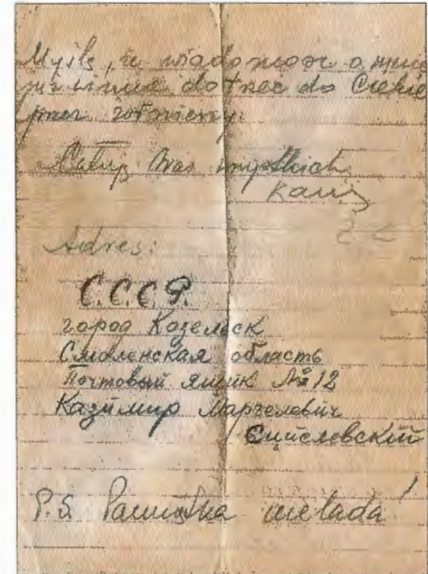 Myślę, że wiadomość o mnie
już dotrzeć do Ciebie
przez żołnierzy.
Całuję Was wszystkich
Kazio
Adres:
С.С.С.Р.
город Козельск
Смоленская область
Почтовый ящик № 12
Казимир Марцелевич
P.S. Pamiątka